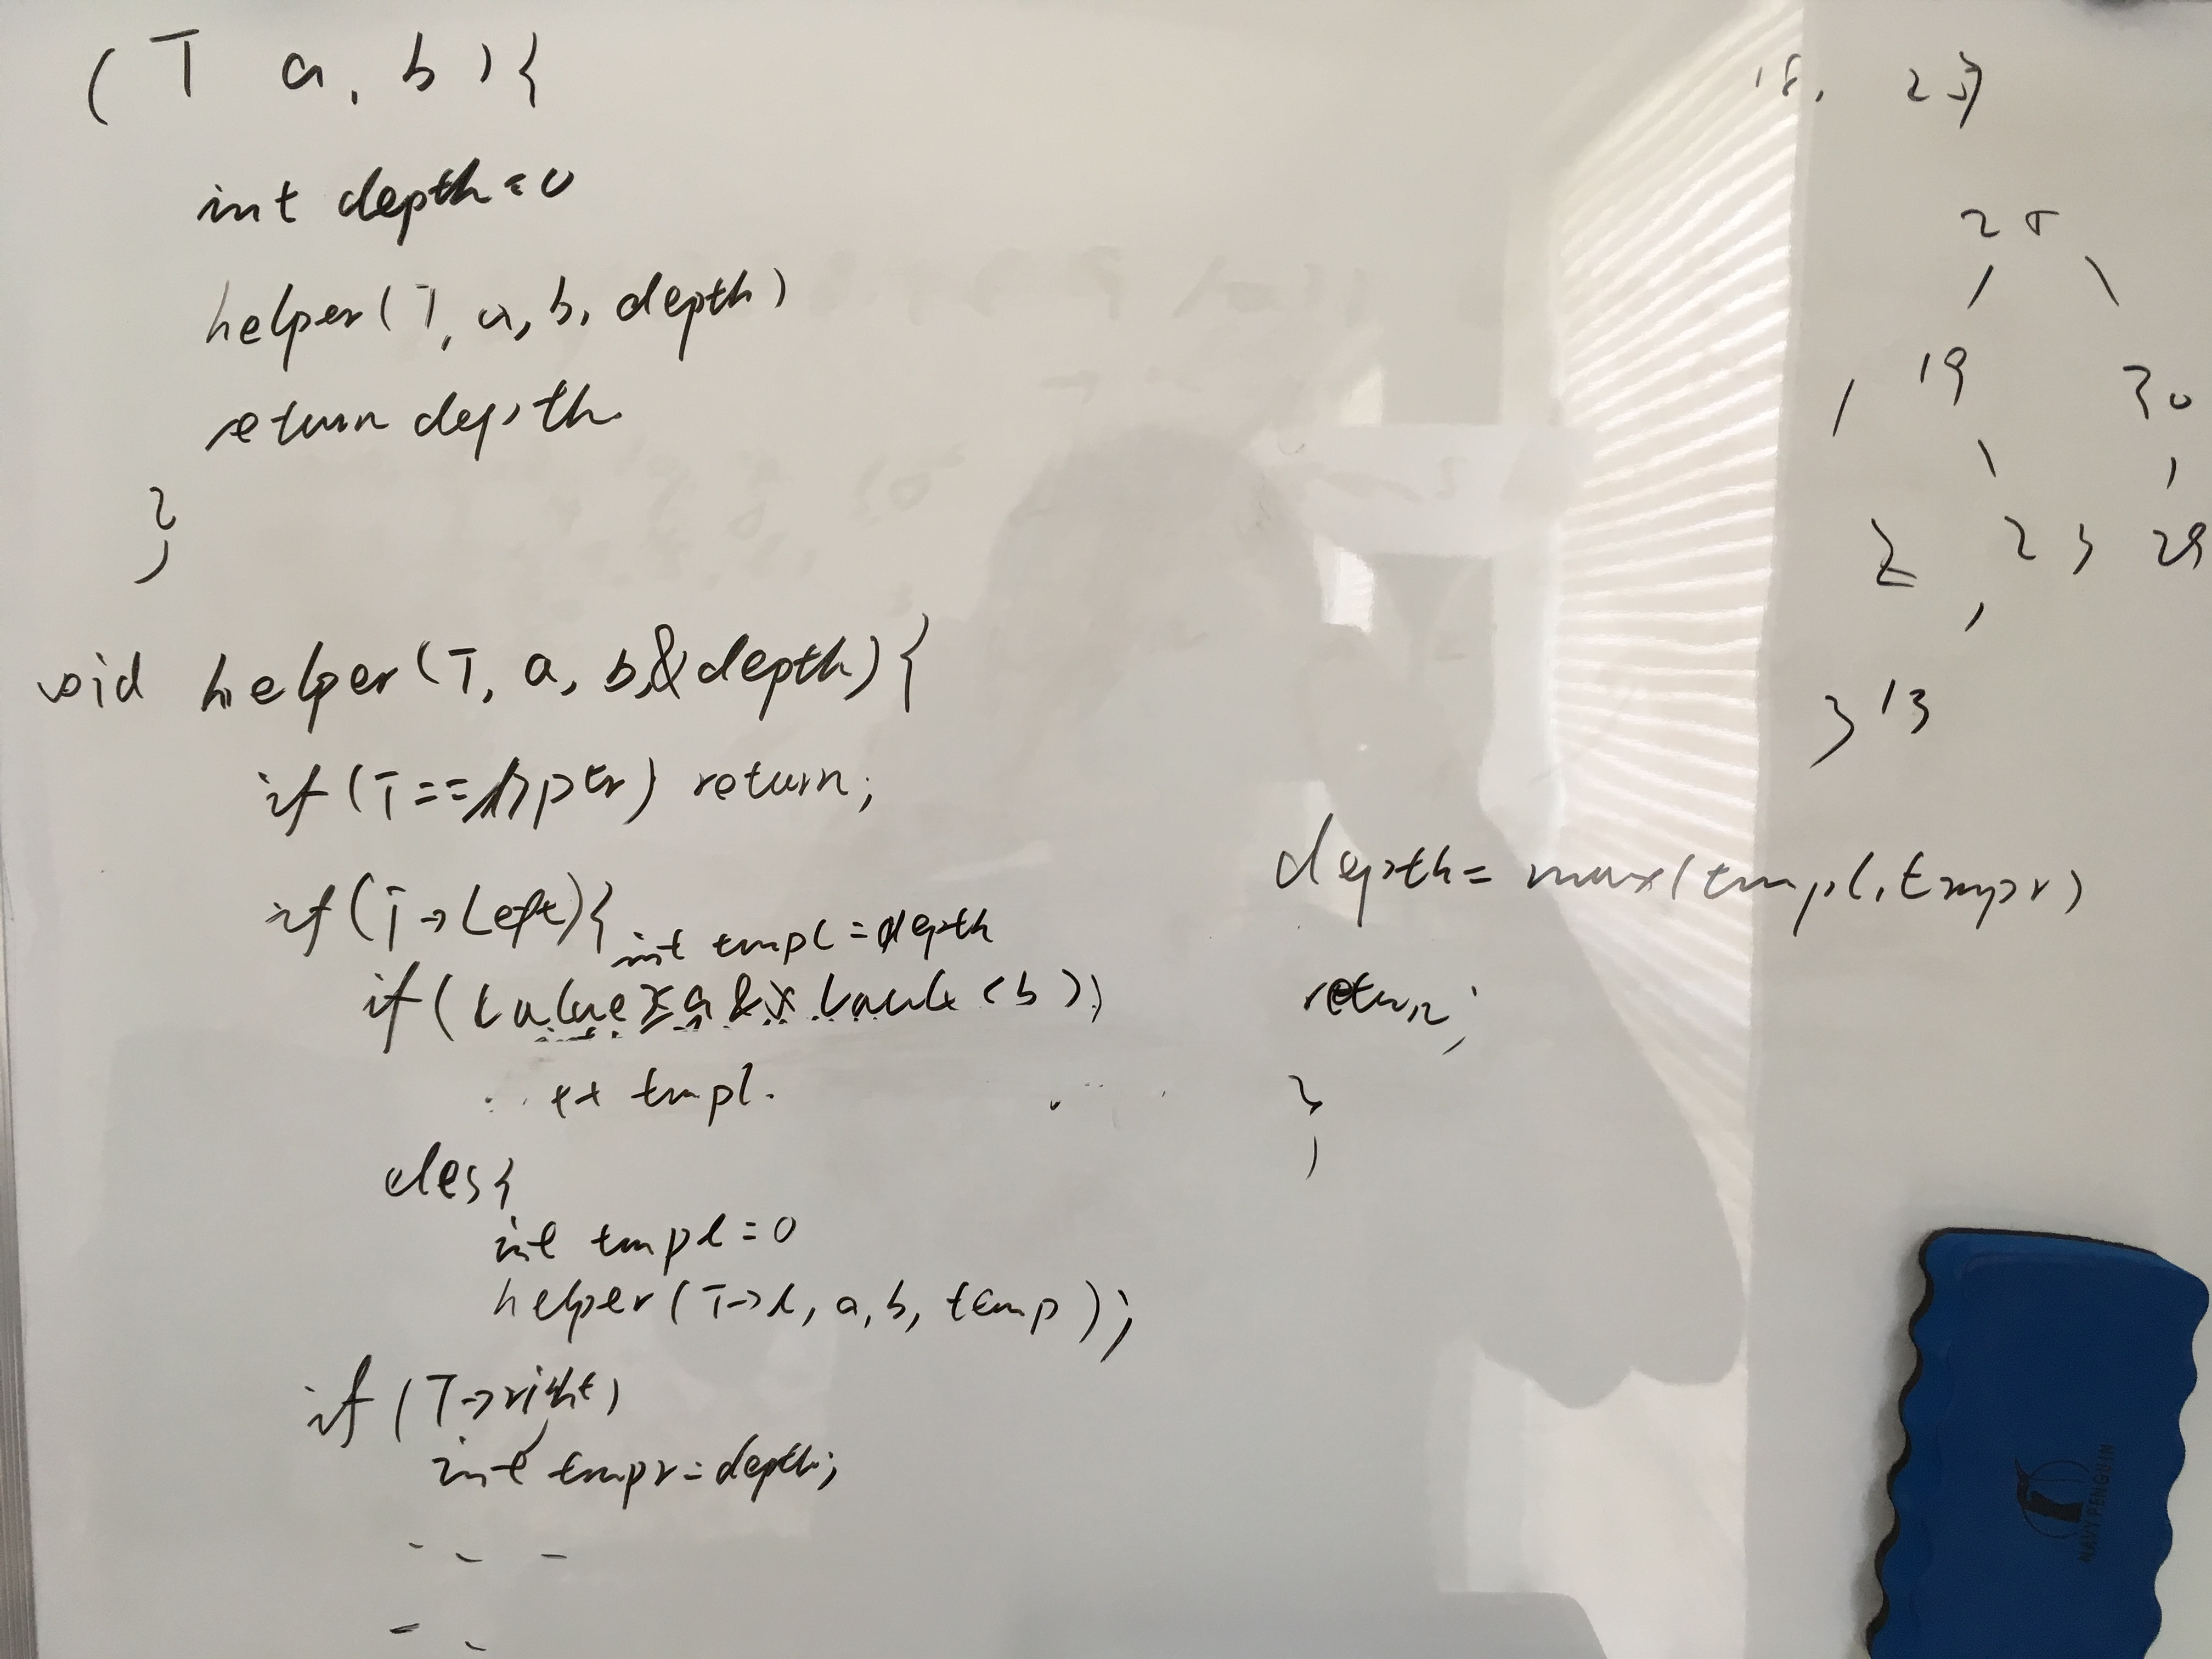 (T a, b){
int depth=0
helper(T, a, b, depth)
return depth
}
void helper(T, a, b,&depth){
if(T==nptr) return;
if(T->Left){ int tmpl=depth
if(value>=a && value<b))
++ tmpl.
eles{
int tmpl=0
helper(T->l, a, b, temp);
if(T->right)
int tmpr=depth;
depth= max(tmpl, tmpr)
return;
}
18, 25
25
1 19 30
2 23 29
3 13
HAPPY PENGUIN